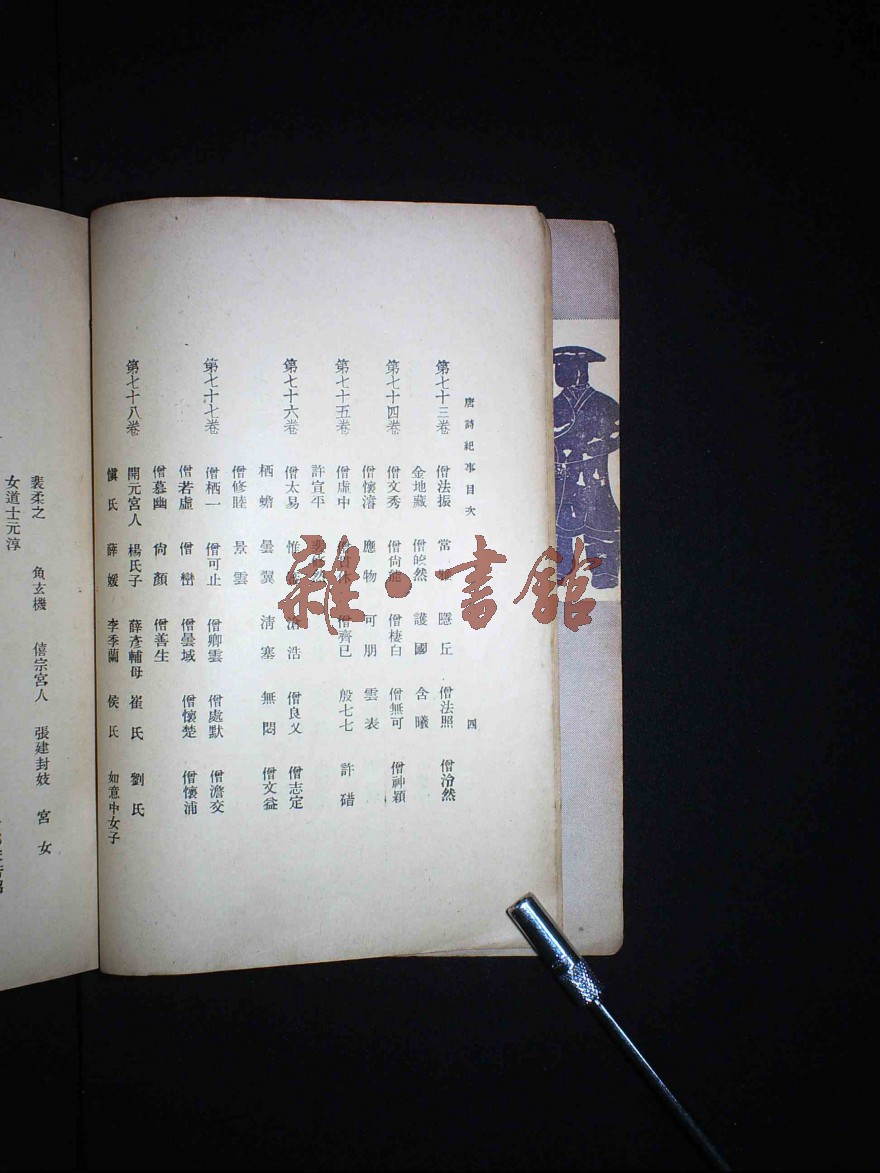 唐詩紀事目次
四
第七十三卷 僧法振 常 隱丘 僧法照 僧泠然
金地藏 僧皎然 護國 含曦
第七十四卷 僧文秀 僧尙能 僧棲白 僧無可 僧神穎
僧懷濬 應物 可朋 雲表
第七十五卷 僧虛中 僧齊已 殷七七 許碏
許宣平
第七十六卷 僧太易 惟 滄浩 僧良乂 僧志定
栖蟾 曇翼 淸塞 無悶 僧文益
僧修睦 景雲
第七十七卷 僧栖一 僧可止 僧卿雲 僧處默 僧澹交
僧若虛 僧鸞 僧曇域 僧懷楚 僧懷浦
僧慕幽 尙顏 僧善生
第七十八卷 開元宮人 楊氏子 薛彥輔母 崔氏 劉氏
愼氏 薛媛 李季蘭 侯氏 如意中女子
裴柔之 魚玄機 僖宗宮人 張建封妓 宮女
女道士元淳
雜·書館